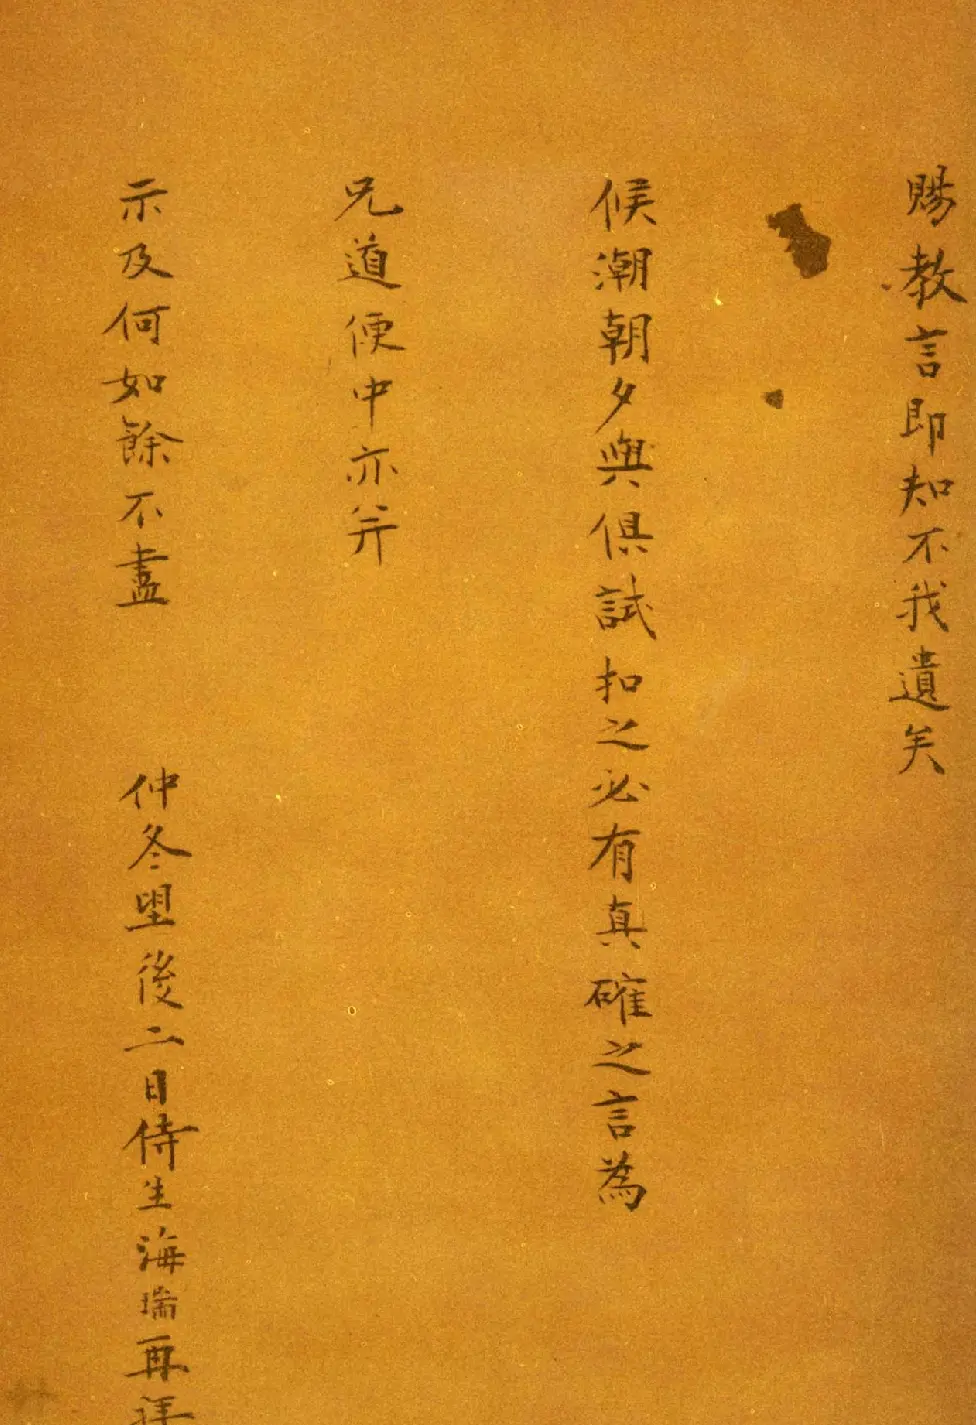 賜教言即知不我遺矣
候潮朝夕與俱試扣之必有真確之言為
兄道便中亦并
示及何如餘不盡 仲冬望後二日侍生海瑞再拜